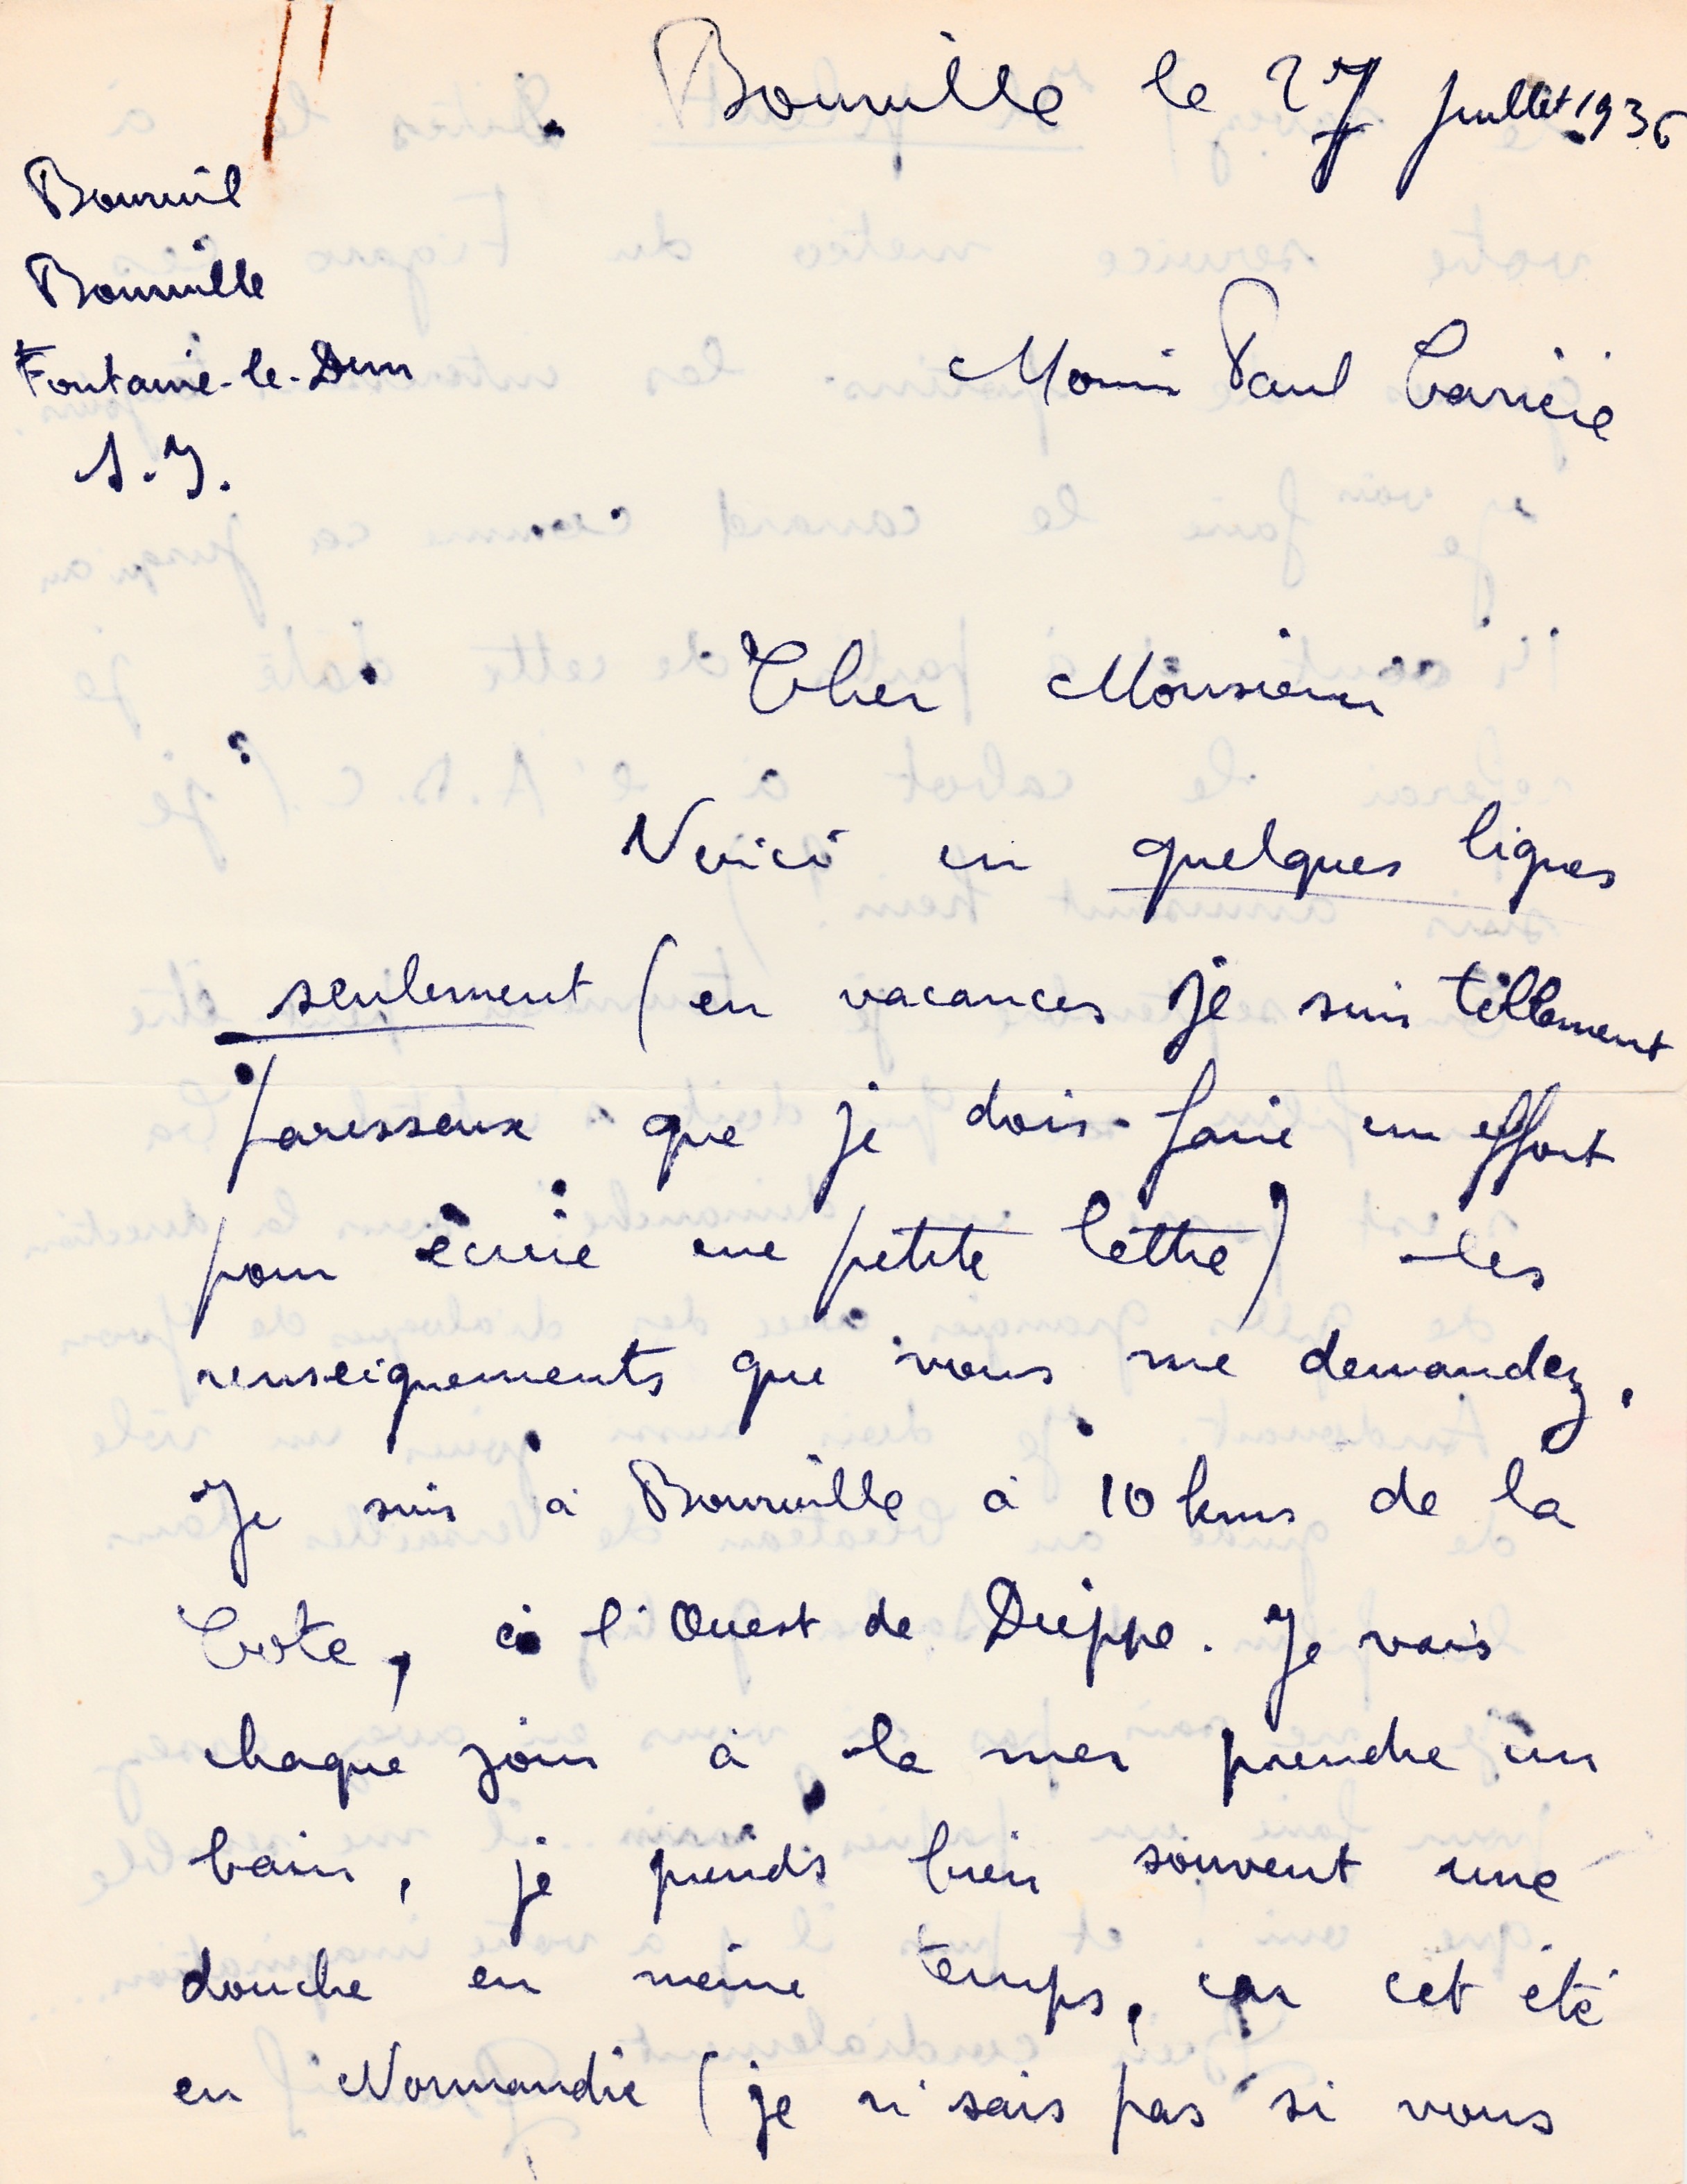 Bourville le 27 juillet 1936
Bourvil
Bourville
Fontaine-le-Dun
S.I.
Monsieur Paul Carrière
Cher Monsieur
Voici en quelques lignes
seulement (en vacances je suis tellement
paresseux que je dois faire un effort
pour écrire une petite lettre) les
renseignements que vous me demandez.
Je suis à Bourville à 10 kms de la
Cote, à l'Ouest de Dieppe. Je vais
chaque jour à la mer prendre un
bain, je prends bien souvent une
douche en même temps, car cet été
en Normandie (je n'sais pas si vous